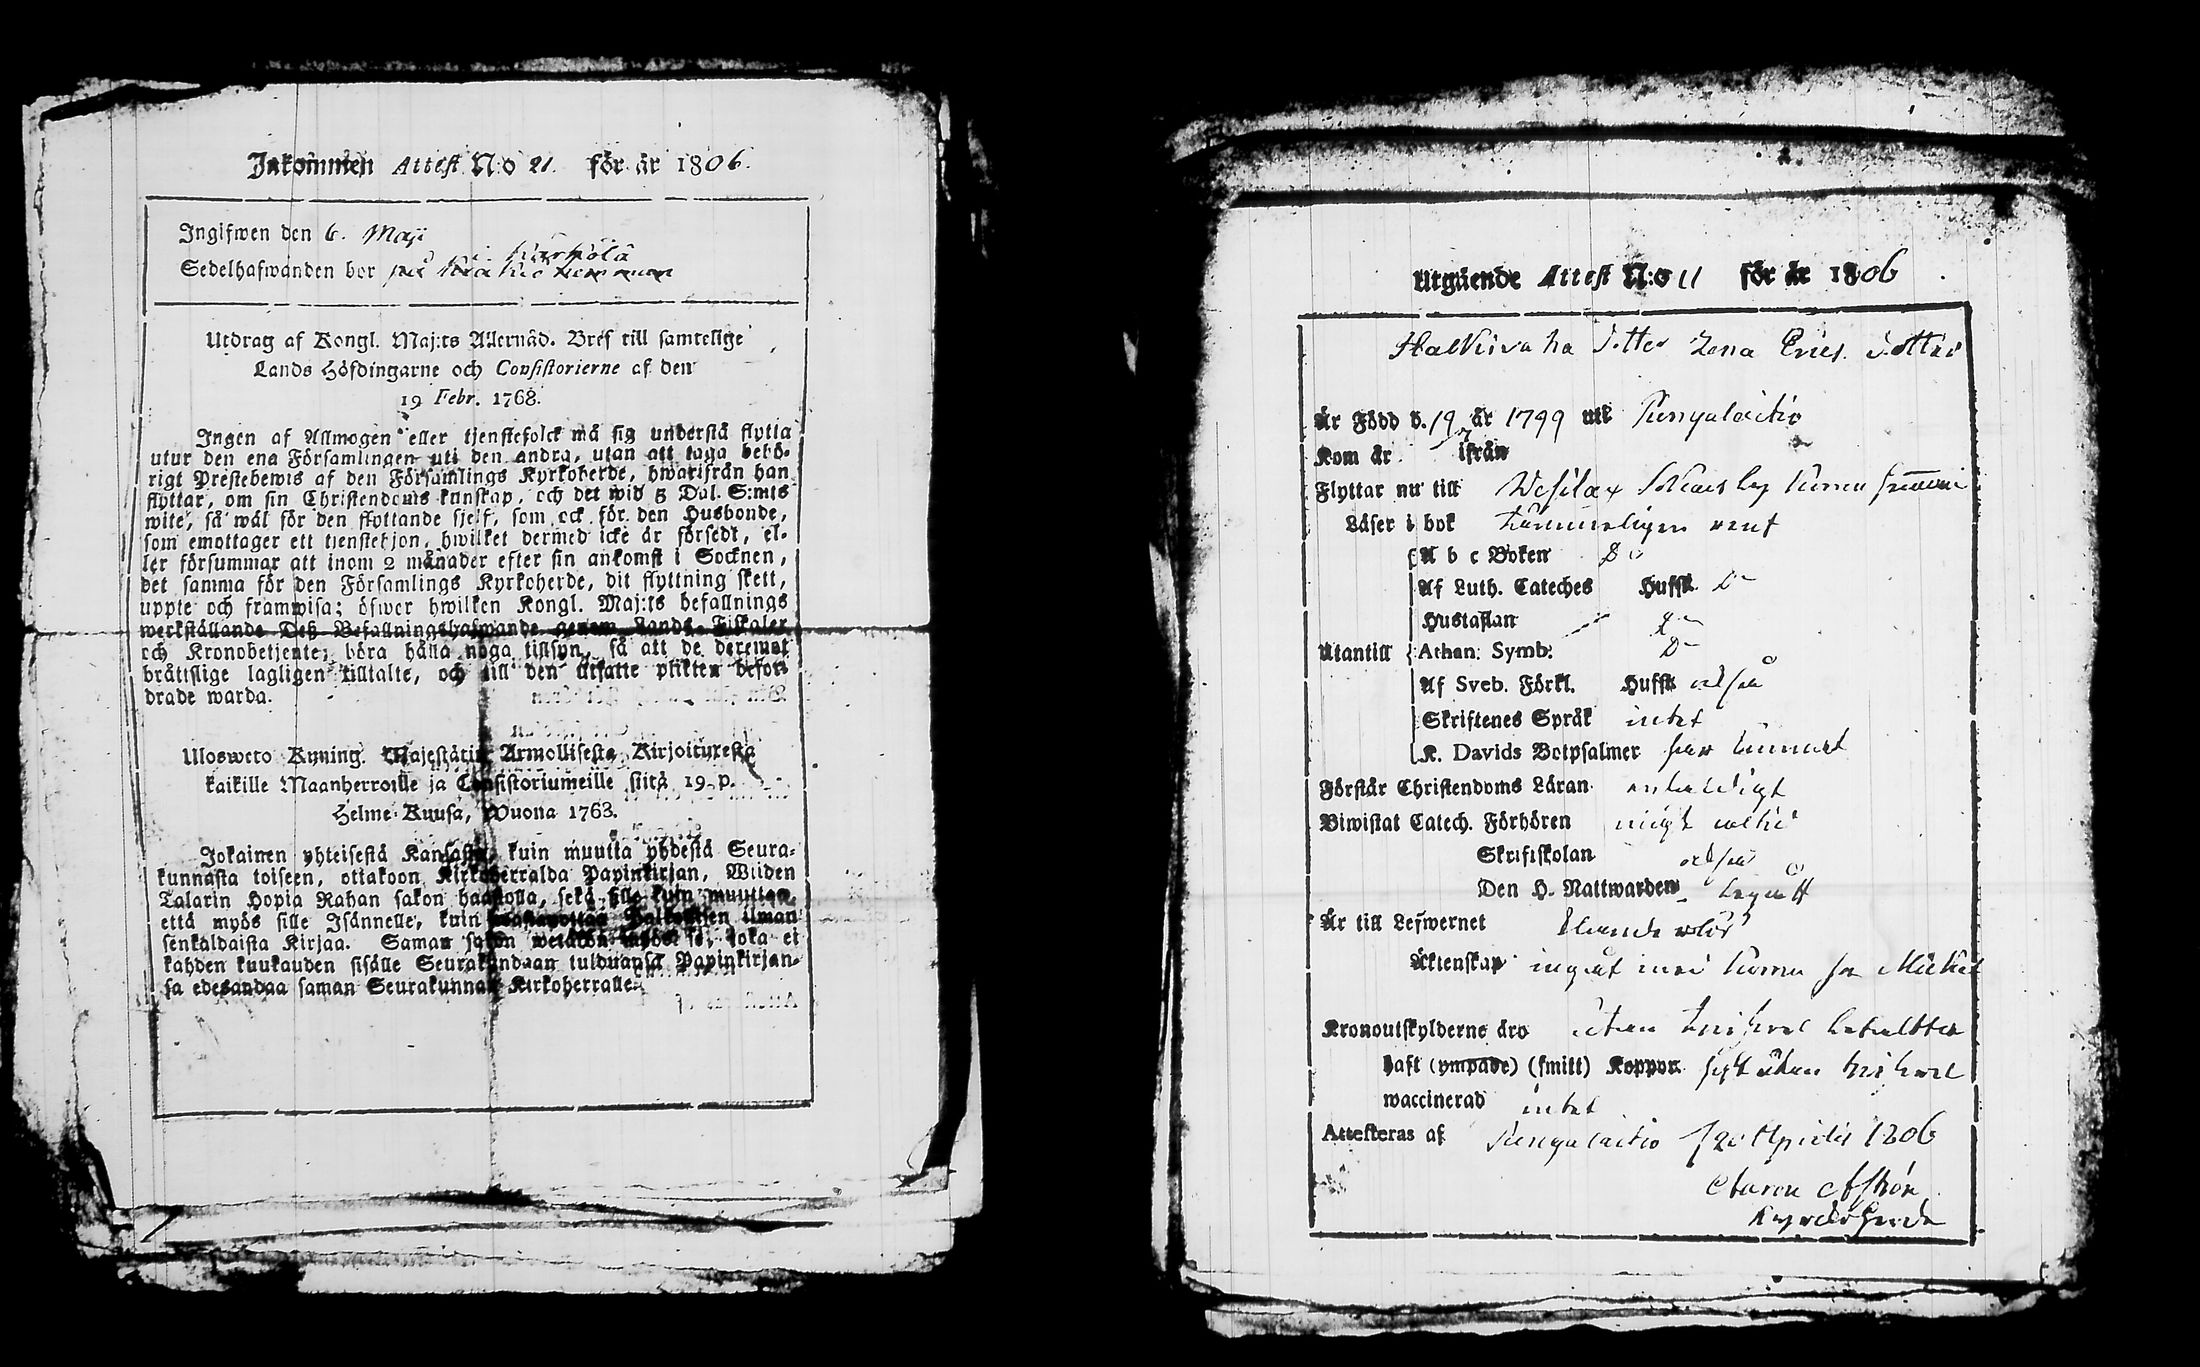 Inkommen Attest N:o 21. för år 1806.
Ingifwen den 6. Maji
i Härkölä
Sedelhafwanden bor på
Utdrag af Kongl. Maj:ts Allernåd. Bref till samtelige
Lands Höfdingarne och Consistorierne af den
19 Febr. 1768.
Ingen af Allmogen eller tjenstefolck må sig understå flytta
utur den ena Församlingen uti den andra, utan att taga behö-
rigt Prestebewis af den Församlings Kyrkoherde, hwarifrån han
flyttar, om sin Christendoms kunskap, och det wid 5 Dal. S:mts
wite, så wäl för den flyttande sjelf, som ock för den Husbonde,
som emottager ett tjenstehjon, hwilket dermed icke är försedt, el-
ler försummar att inom 2 månader efter sin ankomst i Socknen,
det samma för den Församlings Kyrkoherde, dit flyttning skett,
uppte och framwisa; öfwer hwilken Kongl. Maj:ts befallnings
werkställande Deß Befallningshafwande genom Lands-Fiskaler
och Kronobetjente, böra hålla noga tillsyn, så att de deremot
bråttslige lagligen tilltalte, och till den utsatte plikten befor-
drade warda.
Uloswето Kuning. Majestätin Armollisesta Kirjoituxesta
kaikille Maanherroille ja Consistoriumeille siitä 19. p.
Helme-Kuusa, Wuona 1763.
Jokainen yhteisestä Kansasta, kuin muutta yhdestä Seura-
kunnasta toiseen, ottakoon Kirkoherralda Papinkirjan, Wiiden
Talarin Hopia Rahan sakon haastolla, sekä sille kuin muuttaa,
että myös sille Isännelle, kuin ilman
senkaldaista Kirjaa. Saman sakon wetäkön myös se, joka ei
kahden kuukauden sisälle Seurakundaan tulduansa Papinkirjan-
sa edesandaa saman Seurakunnan Kirkoherralle.
Utgående Attest N:o 11 för år 1806
dotter Lena Erics dotter
Är Född d. 19 7 år 1799 uti Pungalaitio
Kom år ifrån
Flyttar nu till Wesilax
Läser i bok tämmeligen rent
A b c Boken Do
Af Luth. Cateches Hufst. Do
Hustaflan Do
Utantill Athan: Symb: Do
Af Sveb. Förkl. Hufst. också
Skriftenes Språk intet
K. Davids Botpsalmer
Förstår Christendoms Läran enfaldigt
Biwistat Catech. Förhören
Skriftskolan också
Den H. Nattwarden begått
Är till Lefwernet
Äktenskap ingåt med
Kronoutskylderne äro utan twifvel betaltta
haft (ympade) (smitt) Koppor haft utan twifvel
waccinerad intet
Attesteras af Pungalaitio d 20 Aprilis 1806
Kyrckoherde